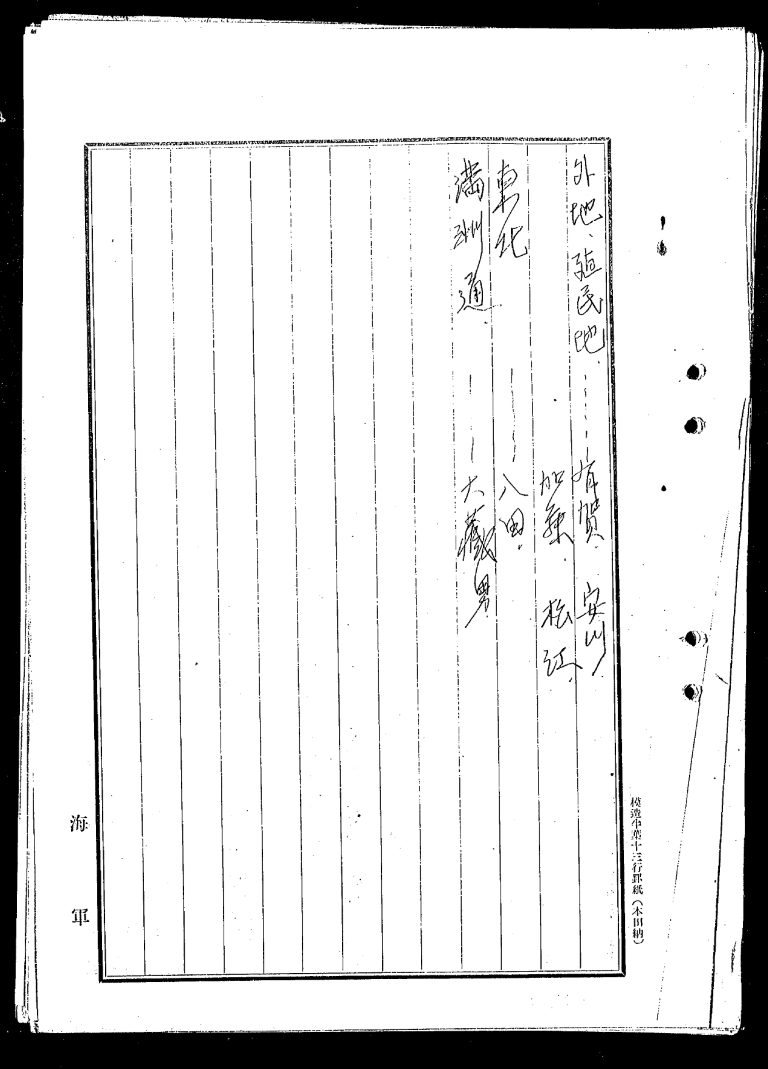 外地、殖民地、……有賀、安川、
加藤、松江、
東北 ……八田、
満洲通、……大蔵男
海軍
模造半葉十三行罫紙(本田納)